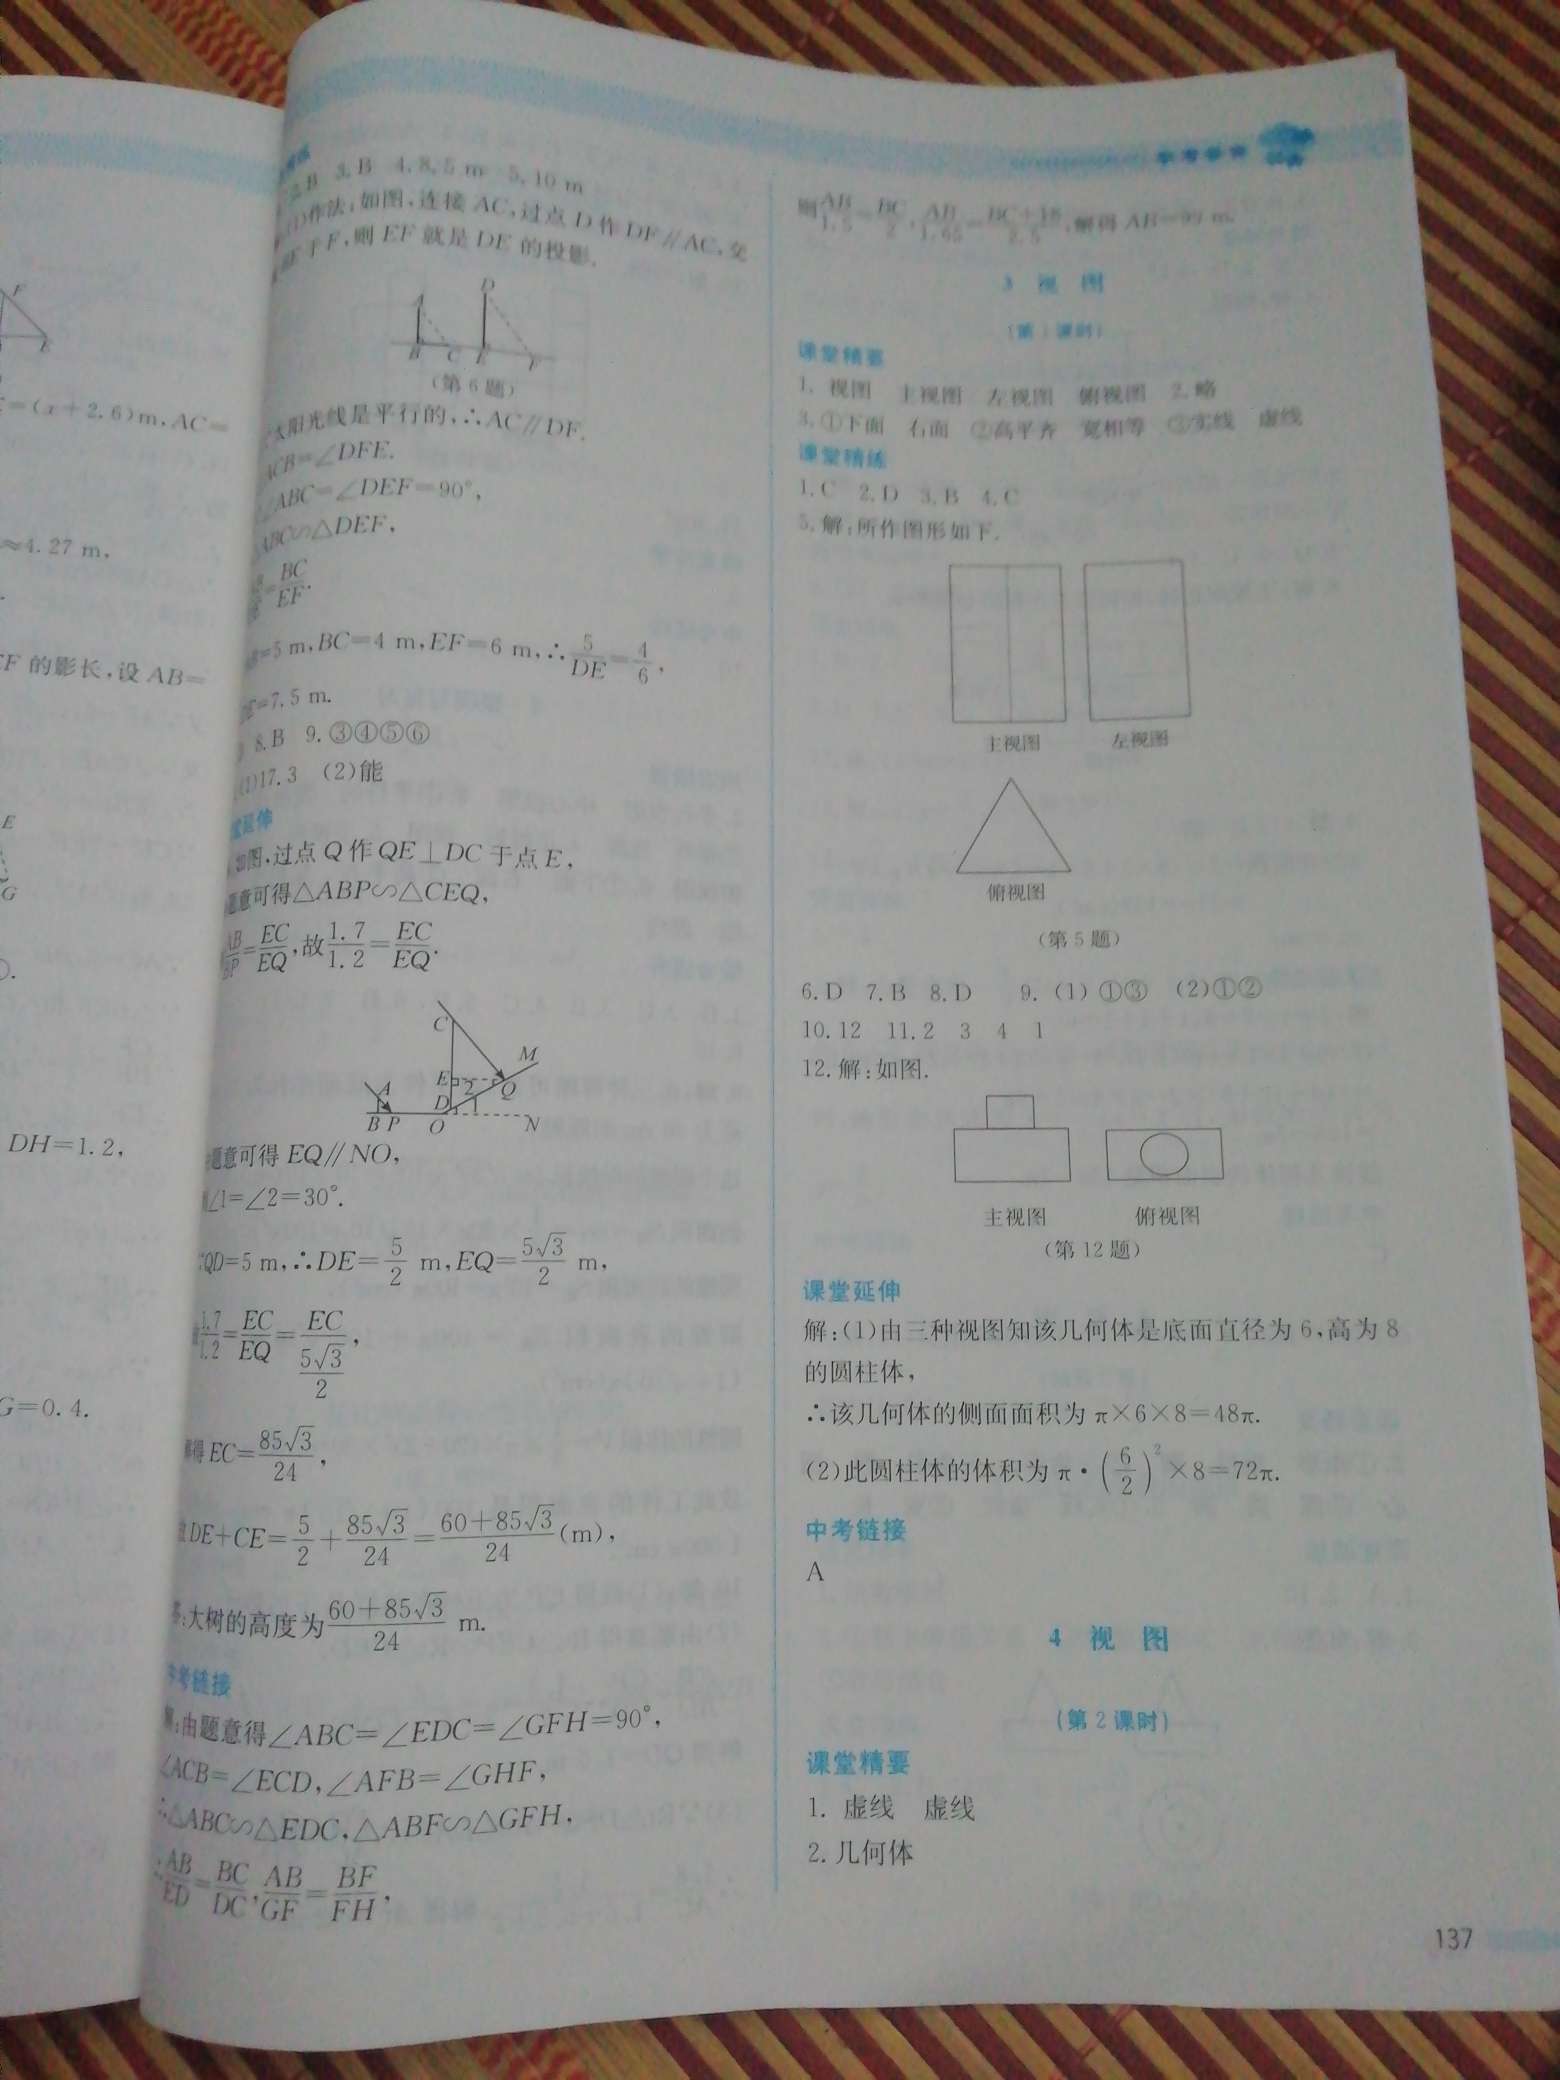 =(x+2.6)m,AC=
≈4.27 m,
F 的影长,设 AB=
E
G
DH=1.2,
G=0.4.
2.B 3.B 4.8.5 m 5.10 m
(1)作法:如图,连接 AC,过点 D 作 DF∥AC,交
BE 于 F,则 EF 就是 DE 的投影.
A D
B C E F
(第 6 题)
太阳光线是平行的,∴AC∥DF.
ACB=∠DFE.
∠ABC=∠DEF=90°,
△ABC∽△DEF,
=BC/EF.
=5 m,BC=4 m,EF=6 m,∴5/DE=4/6,
DE=7.5 m.
8.B 9.③④⑤⑥
(1)17.3 (2)能
堂延伸
如图,过点 Q 作 QE⊥DC 于点 E,
题意可得△ABP∽△CEQ,
AB/BP=EC/EQ,故1.7/1.2=EC/EQ.
C
M
A E 2 Q
D 1
B P O N
题意可得 EQ∥NO,
∠1=∠2=30°.
QD=5 m,∴DE=5/2 m,EQ=5√3/2 m,
1.7/1.2=EC/EQ=EC/(5√3/2),
得 EC=85√3/24,
DE+CE=5/2+85√3/24=(60+85√3)/24(m),
:大树的高度为(60+85√3)/24 m.
中考链接
:由题意得∠ABC=∠EDC=∠GFH=90°,
∠ACB=∠ECD,∠AFB=∠GHF,
∴△ABC∽△EDC,△ABF∽△GFH,
AB/ED=BC/DC,AB/GF=BF/FH,
则AB/1.5=BC/2,AB/1.65=(BC+18)/2.5,解得 AB=99 m.
3 视 图
(第 1 课时)
课堂精要
1. 视图 主视图 左视图 俯视图 2.略
3.①下面 右面 ②高平齐 宽相等 ③实线 虚线
课堂精练
1.C 2.D 3.B 4.C
5.解:所作图形如下.
主视图 左视图
俯视图
(第 5 题)
6.D 7.B 8.D 9.(1)①③ (2)①②
10.12 11.2 3 4 1
12.解:如图.
主视图 俯视图
(第 12 题)
课堂延伸
解:(1)由三种视图知该几何体是底面直径为 6,高为 8
的圆柱体,
∴该几何体的侧面面积为 π×6×8=48π.
(2)此圆柱体的体积为 π·(6/2)²×8=72π.
中考链接
A
4 视 图
(第 2 课时)
课堂精要
1. 虚线 虚线
2.几何体
137